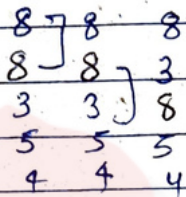 8 8 8
8 8 3
3 3 8
5 5 5
4 4 4